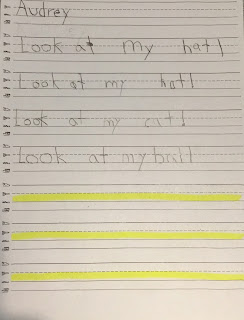 Audrey
Look at my hat!
Look at my hat!
Look at my cat!
Look at my ball